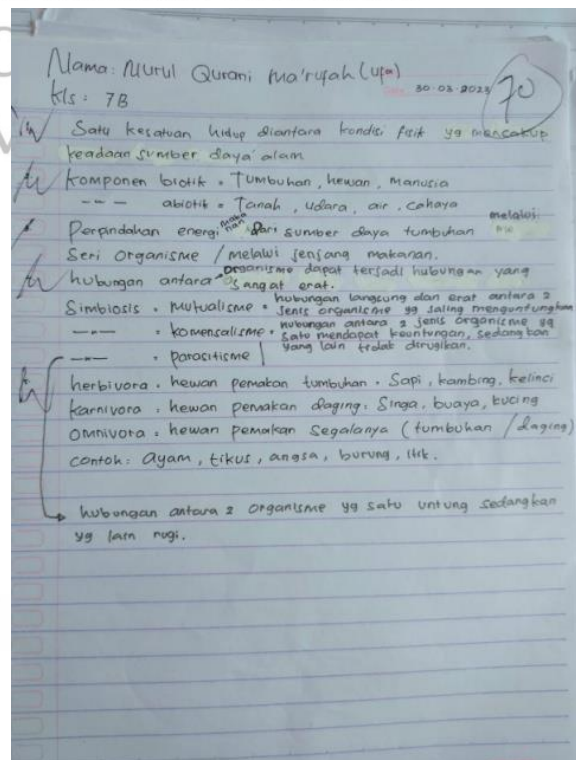 Nama: Nurul Qurani Ma'rufah (Ufa)
30-03-2023
70
Kls: 7B
Satu kesatuan hidup diantara kondisi fisik yg mencakup
keadaan sumber daya alam
Komponen biotik = Tumbuhan, hewan, manusia
-"- abiotik = Tanah, udara, air, cahaya
Perpindahan energi makanan dari sumber daya tumbuhan melalui
Seri organisme / melalui jenjang makanan.
hubungan antara organisme dapat terjadi hubungan yang
sangat erat.
Simbiosis = Mutualisme = hubungan langsung dan erat antara 2
jenis organisme yg saling menguntungkan
-"- = komensalisme = hubungan antara 2 jenis organisme yg
satu mendapat keuntungan, sedangkan
yang lain tidak dirugikan.
-"- = parasitisme
herbivora = hewan pemakan tumbuhan = Sapi, kambing, kelinci
karnivora = hewan pemakan daging: Singa, buaya, kucing
omnivora = hewan pemakan segalanya (tumbuhan / daging)
contoh: ayam, tikus, angsa, burung, itik.
hubungan antara 2 organisme yg satu untung sedangkan
yg lain rugi.